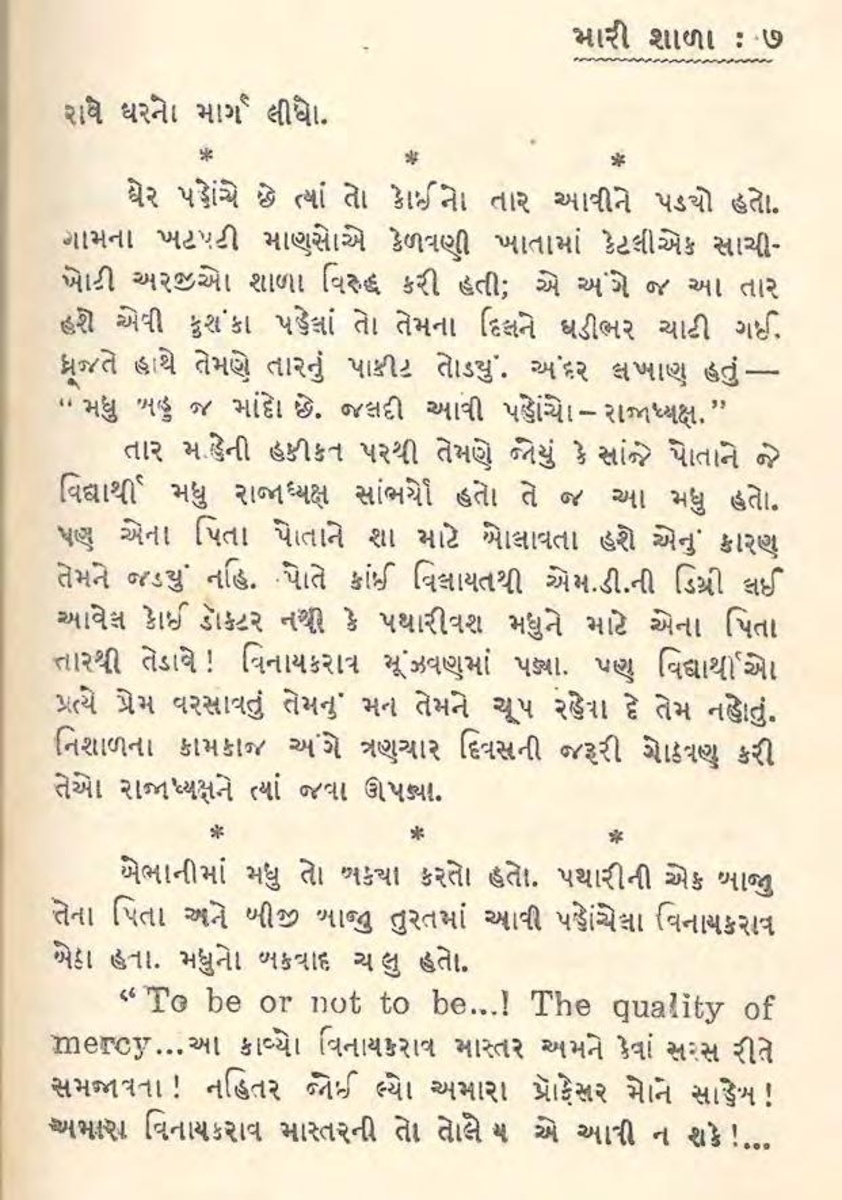 મારી શાળા : ૭
રાવે ઘરનો માર્ગ લીધો.
* * *
ઘેર પહોંચે છે ત્યાં તો કોઈનો તાર આવીને પડયો હતો.
ગામના ખટપટી માણસોએ કેળવણી ખાતામાં કેટલીએક સાચી-
ખોટી અરજીઓ શાળા વિરુદ્ધ કરી હતી; એ અંગે જ આ તાર
હશે એવી કુશંકા પહેલાં તો તેમના દિલને ઘડીભર ચાટી ગઈ.
ધ્રૂજતે હાથે તેમણે તારનું પાકીટ તોડયું. અંદર લખાણ હતું—
“મધુ બહુ જ માંદો છે. જલદી આવી પહોંચો–રાજાધ્યક્ષ.”
તાર મહેની હકીકત પરથી તેમણે જોયું કે સાંજે પોતાને જે
વિદ્યાર્થી મધુ રાજાધ્યક્ષ સાંભર્યો હતો તે જ આ મધુ હતો.
પણ એના પિતા પોતાને શા માટે બોલાવતા હશે એનું કારણ
તેમને જડયું નહિ. પોતે કાંઈ વિલાયતથી એમ.ડી.ની ડિગ્રી લઈ
આવેલ કોઈ ડૉક્ટર નથી કે પથારીવશ મધુને માટે એના પિતા
તારથી તેડાવે! વિનાયકરાવ મૂંઝવણમાં પડ્યા. પણ વિદ્યાર્થીઓ
પ્રત્યે પ્રેમ વરસાવતું તેમનું મન તેમને ચૂપ રહેવા દે તેમ નહોતું.
નિશાળના કામકાજ અંગે ત્રણચાર દિવસની જરૂરી ગોઠવણ કરી
તેઓ રાજાધ્યક્ષને ત્યાં જવા ઊપડ્યા.
* * *
બેભાનીમાં મધુ તો બકયા કરતો હતો. પથારીની એક બાજુ
તેના પિતા અને બીજી બાજુ તુરતમાં આવી પહોંચેલા વિનાયકરાવ
બેઠા હતા. મધુનો બકવાદ ચલુ હતો.
“To be or not to be...! The quality of
mercy...આ કાવ્યો વિનાયકરાવ માસ્તર અમને કેવાં સરસ રીતે
સમજાવતા! નહિતર જોઈ લ્યો અમારા પ્રૉફેસર મોને સાહેબ!
અમારા વિનાયકરાવ માસ્તરની તો તોલેય એ આવી ન શકે!...